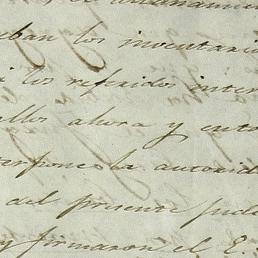 eban los inventari
i los referidos inter
ellos ahora y ento
terpone la autorid
del presente
y firmaron el E.